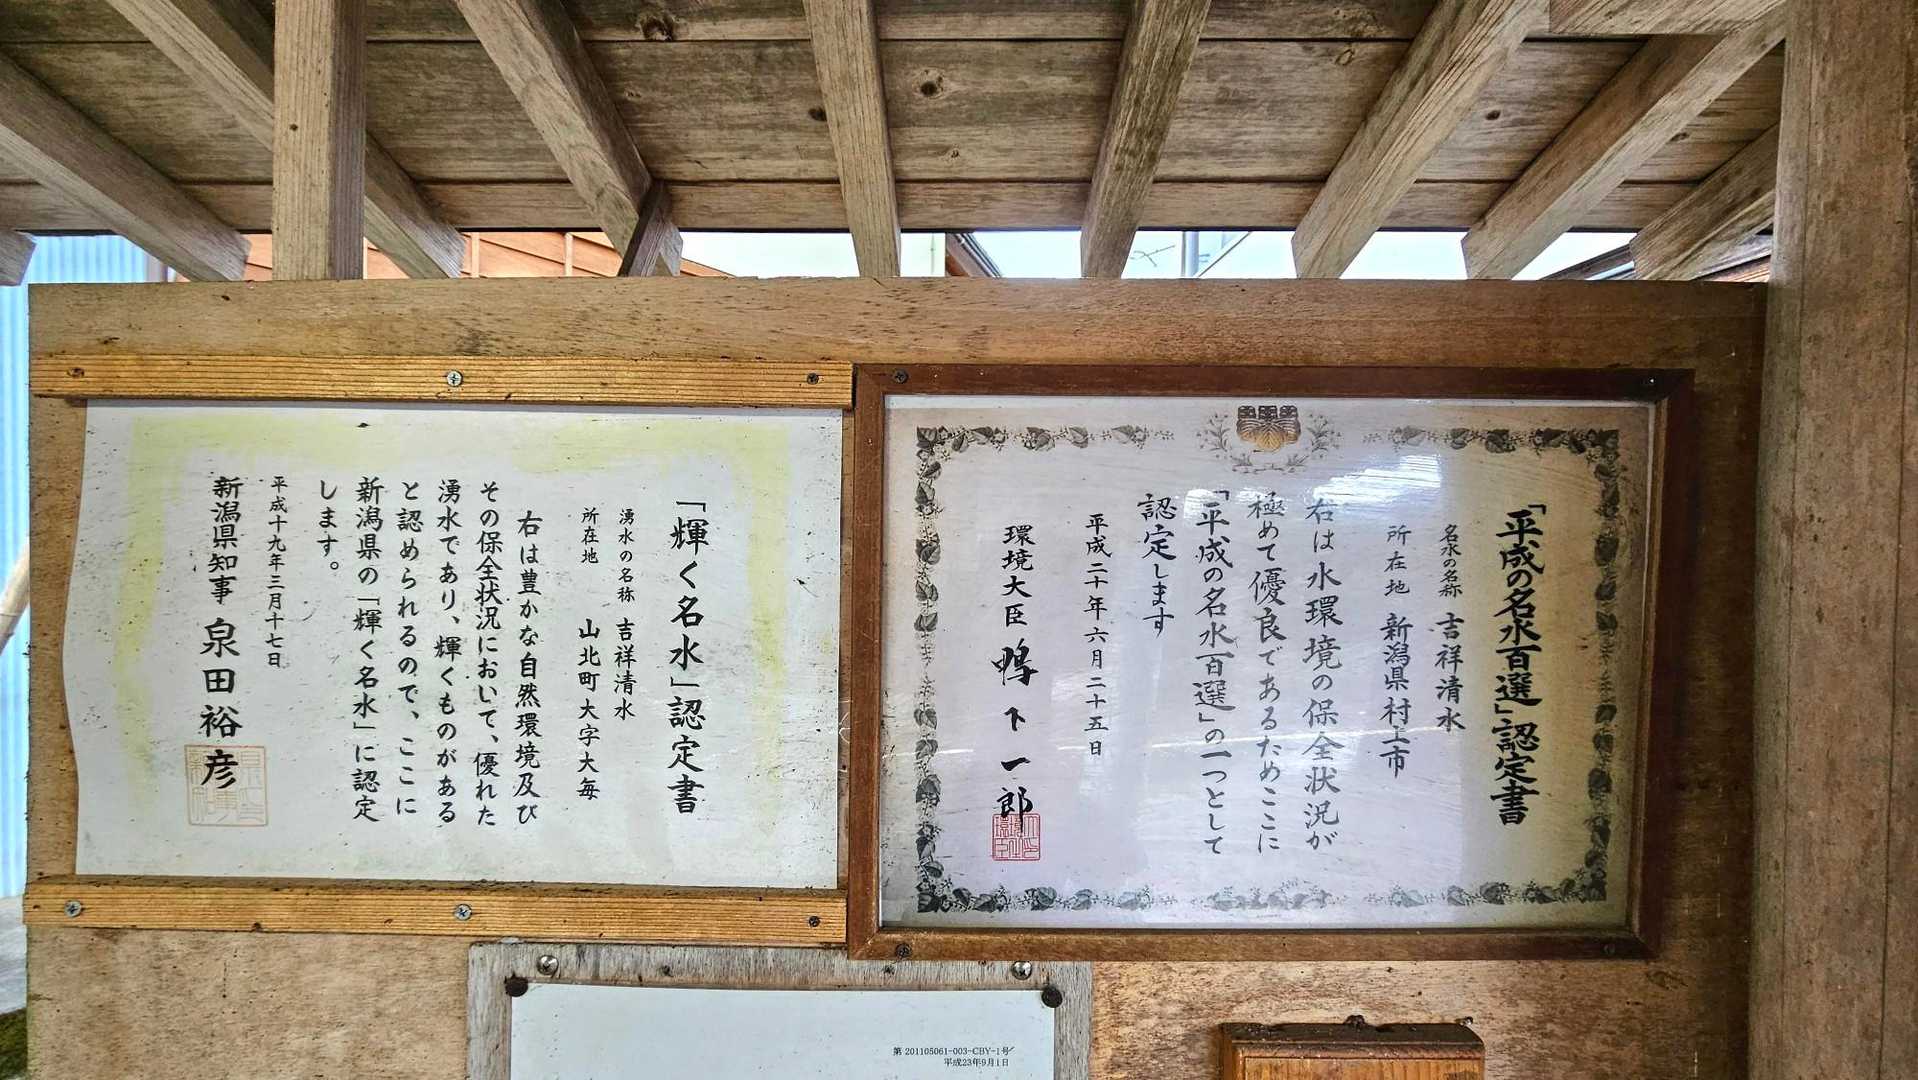 「平成の名水百選」認定書
名水の名称 吉祥清水
所在地 新潟県村上市
右は水環境の保全状況が
極めて優良であるためここに
「平成の名水百選」の一つとして
認定します
平成二十年六月二十五日
環境大臣 鴨下一郎
「輝く名水」認定書
湧水の名称 吉祥清水
所在地 山北町大字大毎
右は豊かな自然環境及び
その保全状況において、優れた
湧水であり、輝くものがある
と認められるので、ここに
新潟県の「輝く名水」に認定
します。
平成十九年三月十七日
新潟県知事 泉田裕彦
第 201105061-003-CBY-1号
平成23年9月1日